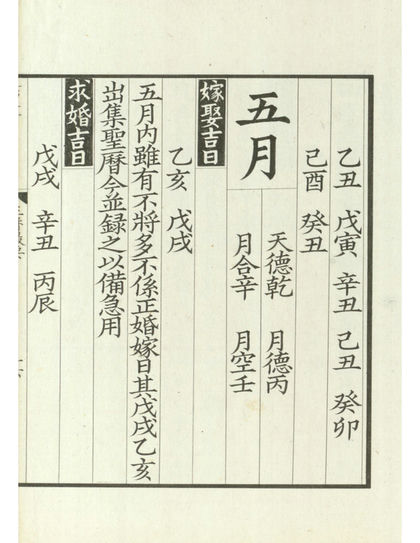 乙丑 戊寅 辛丑 己丑 癸卯
己酉 癸丑
五月
天德乾 月德丙
月合辛 月空壬
嫁娶吉日
乙亥 戊戌
五月内雖有不將多不係正婚嫁日其戊戌乙亥
出集聖曆今並録之以備急用
求婚吉日
戊戌 辛丑 丙辰